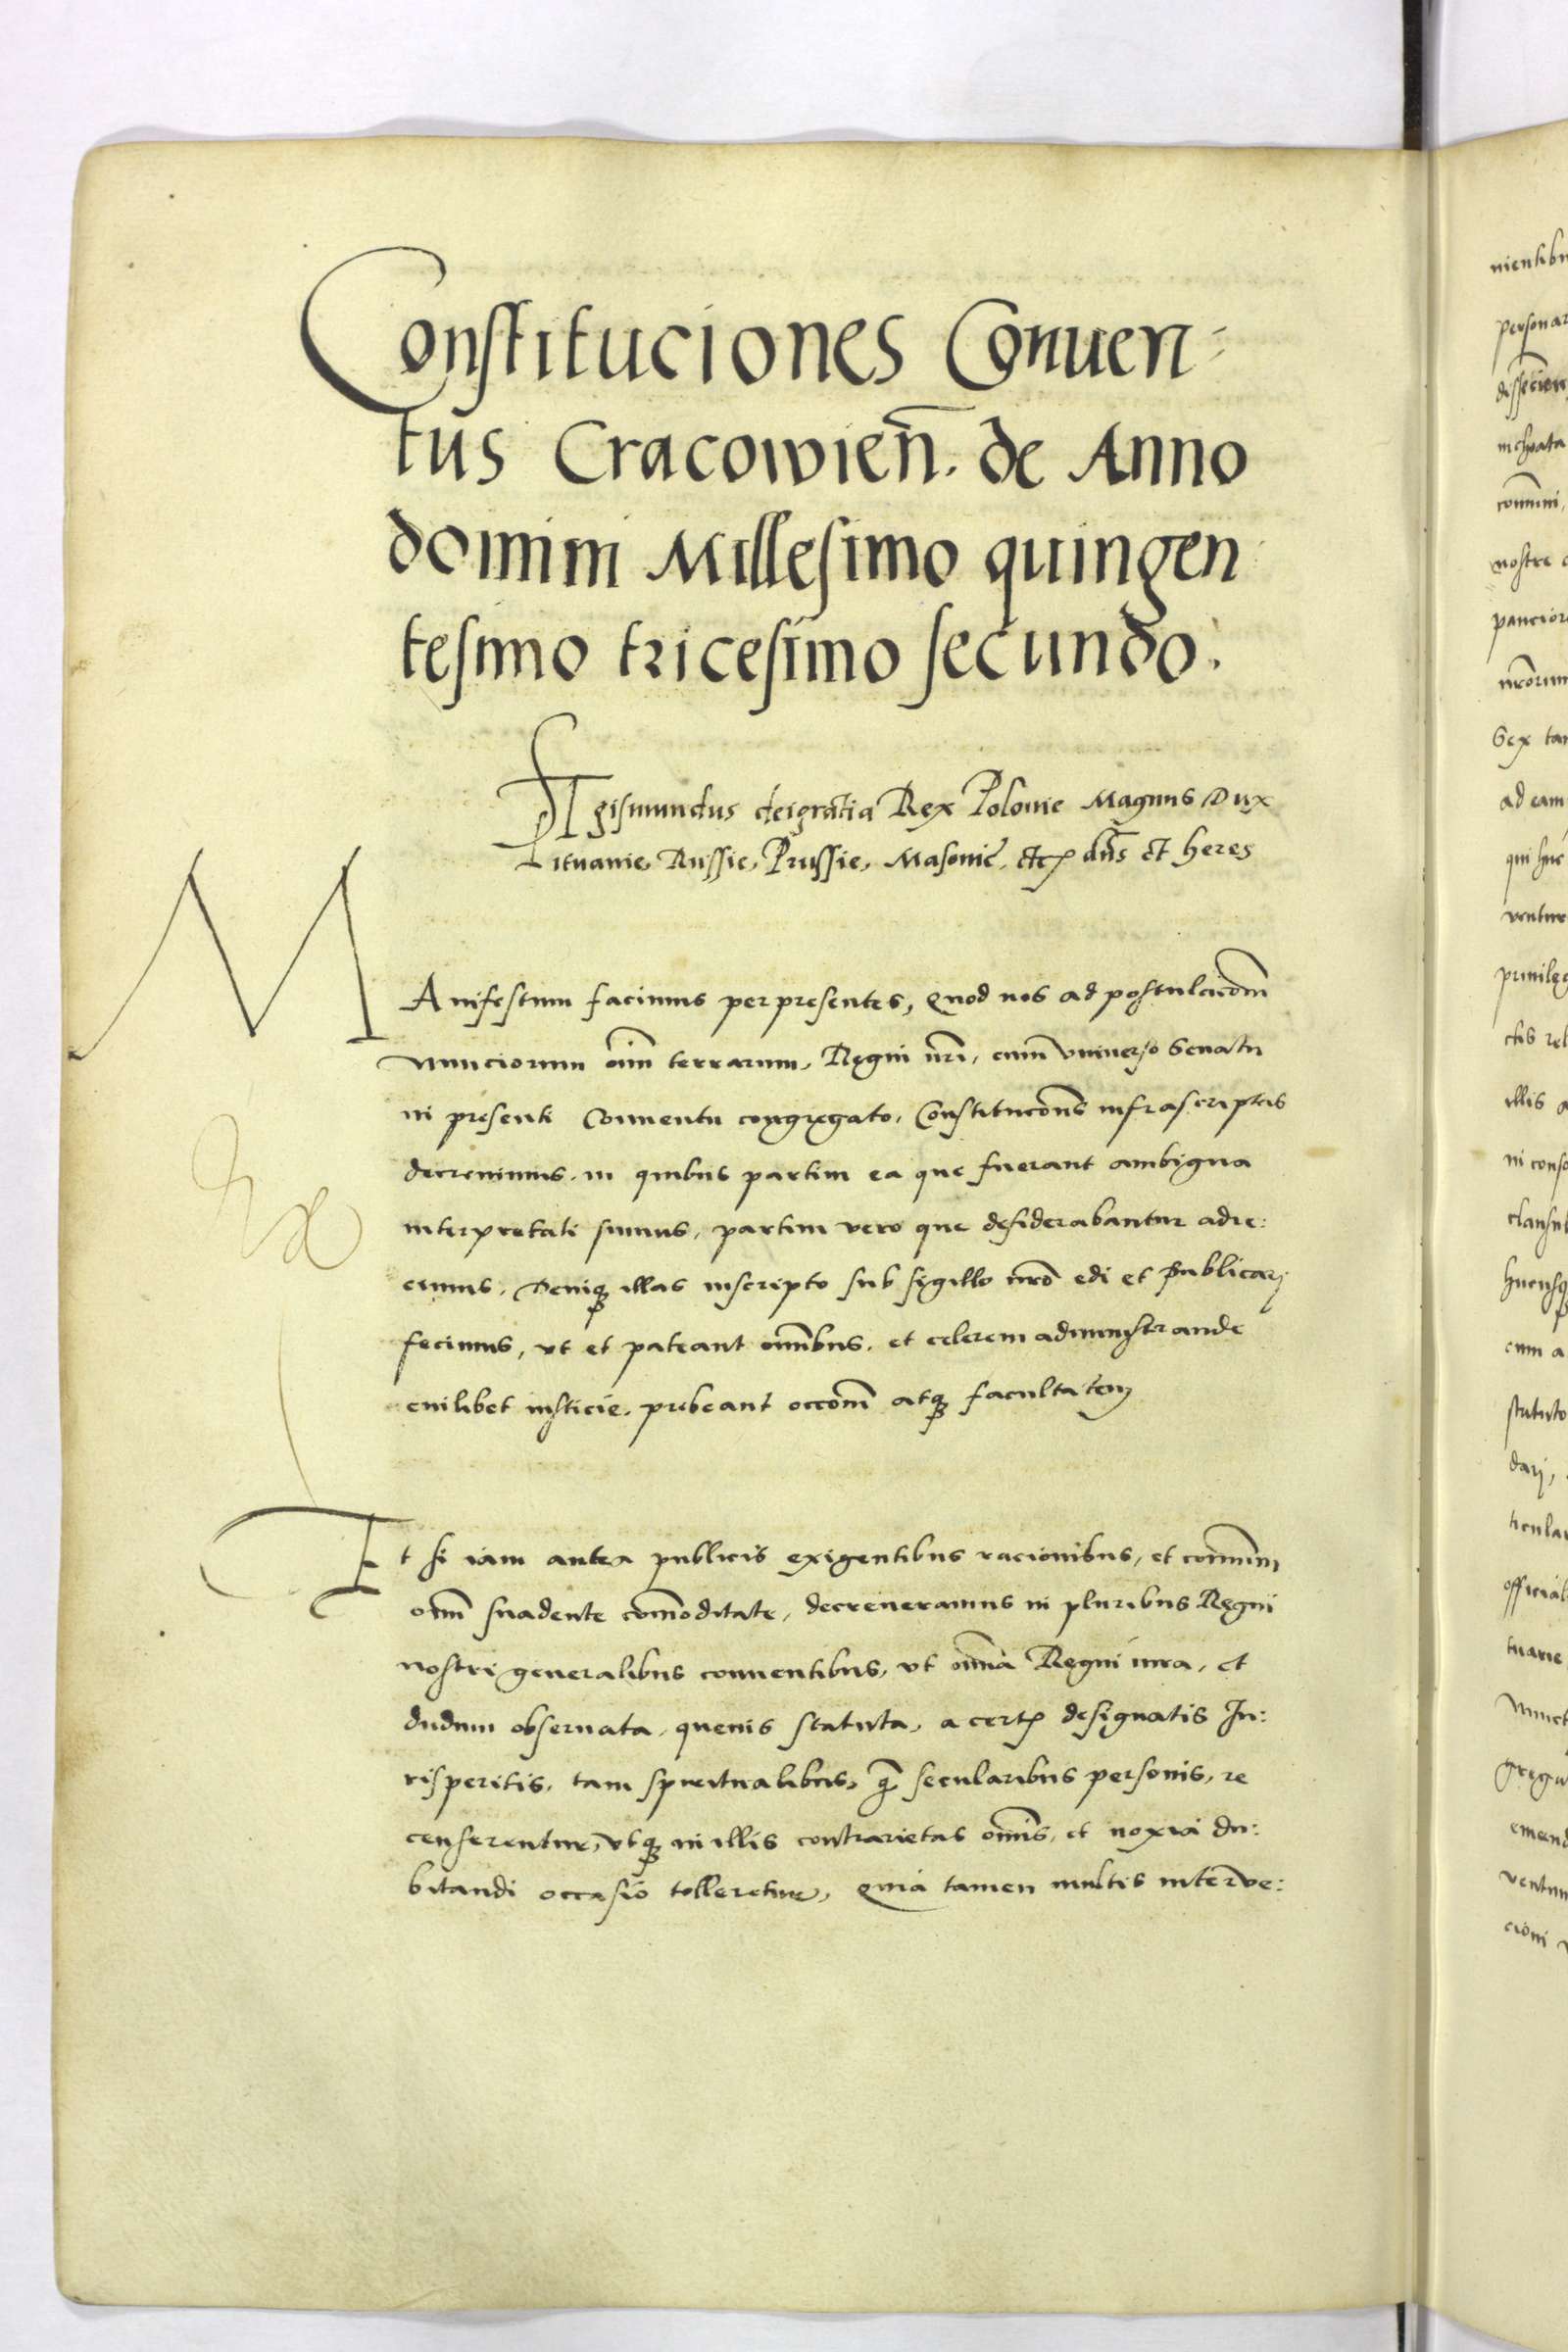 Constituciones Conuen-
tus Cracowien̄. de Anno
domini Millesimo quingen
tesimo tricesimo secundo.
SIgismundus deigratia Rex Polonie Magnus Dux
Lituanie, Russie, Prussie, Masouie, etc̄ dn̄s et heres
MAnifestum facimus per presentes, Quod nos ad postulaciōm
Nunciorum oīm terrarum, Regni nr̄i, cum vniuerso Senatu
in presenti Conuentu congregato, Constitucōns infrascriptas
decreuimus. in quibus partim ea que fuerant ambigua
interpretati sumus, partim vero que desiderabantur adie:
cimus, Deniqꝫ illas inscripto sub sigillo nrō edi et publicarj
fecimus, vt et pateant oīmbus. et celerem administrande
cuilibet iusticie. prebeant occōm atqꝫ facultatem
Et si iam antea publicis exigentibus racionibus, et com̄uni
oīm suadente com̄oditate, decreueramus in pluribus Regni
nostri generalibus conuentibus, vt oīma Regni iura, et
dudum obseruata, queuis statuta, a certꝭ designatis Ju:
risperitis, tam spiritualibus, q̄ secularibus personis, re
censerentur, vtqꝫ in illis contrarietas oīmis, et noxia du:
bitandi occasio tolleretur, Quia tamen multis interue:
nientibu
nostre
Sex tan
ad eam
qui huc
priuileg
illis a
in conso
cum a
statuto
darj,
official